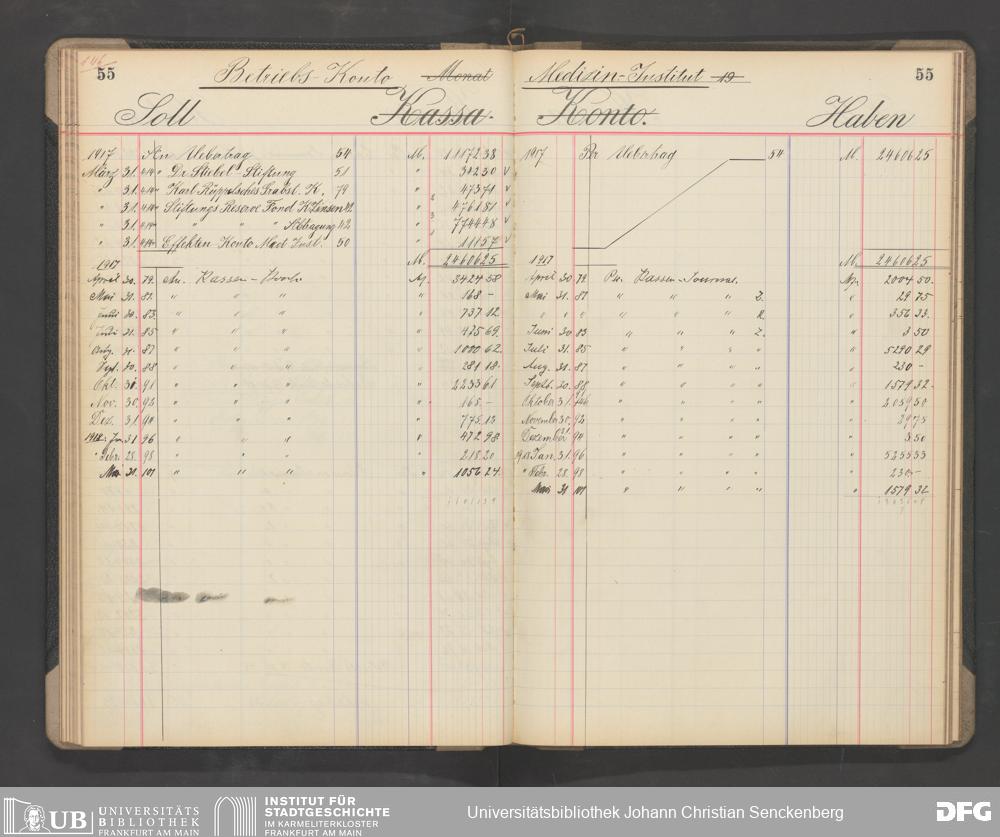 55 Betriebs-Konto Monat
Soll Kassa.
1917 An Uebertrag 54 M. 11172 38
März 31. " Dr. Stiebel Stiftung 51 " 342 30
" 31. " Karl Rüppelsches Grabst. K. 79 " 473 71
" 31. " Stiftungs Reserve Fond K. Zinsen 42. " 4761 81
" 31. " " " " Abtragung 42 " 7744 48
" 31. Effekten Konto Med. Inst. 50 " 111 57
M. 24606 25
1917
April 30. 79. An. Kassen-Konto M. 3424 58
Mai 31. 81. " " " " 168 –
Juni 30. 83. " " " " 737 12
Juli 31. 85 " " " " 475 69
Aug. 31. 87 " " " " 1080 62.
Sept. 30. 88 " " " " 281 18.
Okt. 31. 91 " " " " 2233 61
Nov. 30. 92 " " " " 165. –
Dez. 31. 94 " " " " 775 13
1918. Jan. 31 96 " " " " 472 98
" Febr. 28. 98 " " " 218 20
März 31. 101 " " " " 1056 24
Medizin-Institut 19 55
Konto. Haben
1917 Per Uebertrag 54 M. 24606 25
1917 M. 24606 25
April 30 79. Per. Kassen-Journal. M. 2004 50.
Mai 31. 81 " " " Z. " 29 75
" " " " " " R. " 356 33.
Juni 30 83 " " " Z. " 3 50
Juli 31. 85 " " " " " 5290 29
Aug. 31. 87 " " " " " 230 –
Sept. 30. 88 " " " " " 1579 32
Oktober 31. 146 " " " " " 2059 50
November 30. 92 " " " " " 29 75
Dezember 31. 94 " " " " " 3 50
1918 Jan. 31. 96 " " " " " 5255 33
" Febr. 28. 98 " " " " " 230 –
März 31 101 " " " " " 1579 32
UB UNIVERSITÄTS
BIBLIOTHEK
FRANKFURT AM MAIN
INSTITUT FÜR
STADTGESCHICHTE
IM KARMELITERKLOSTER
FRANKFURT AM MAIN
Universitätsbibliothek Johann Christian Senckenberg
DFG